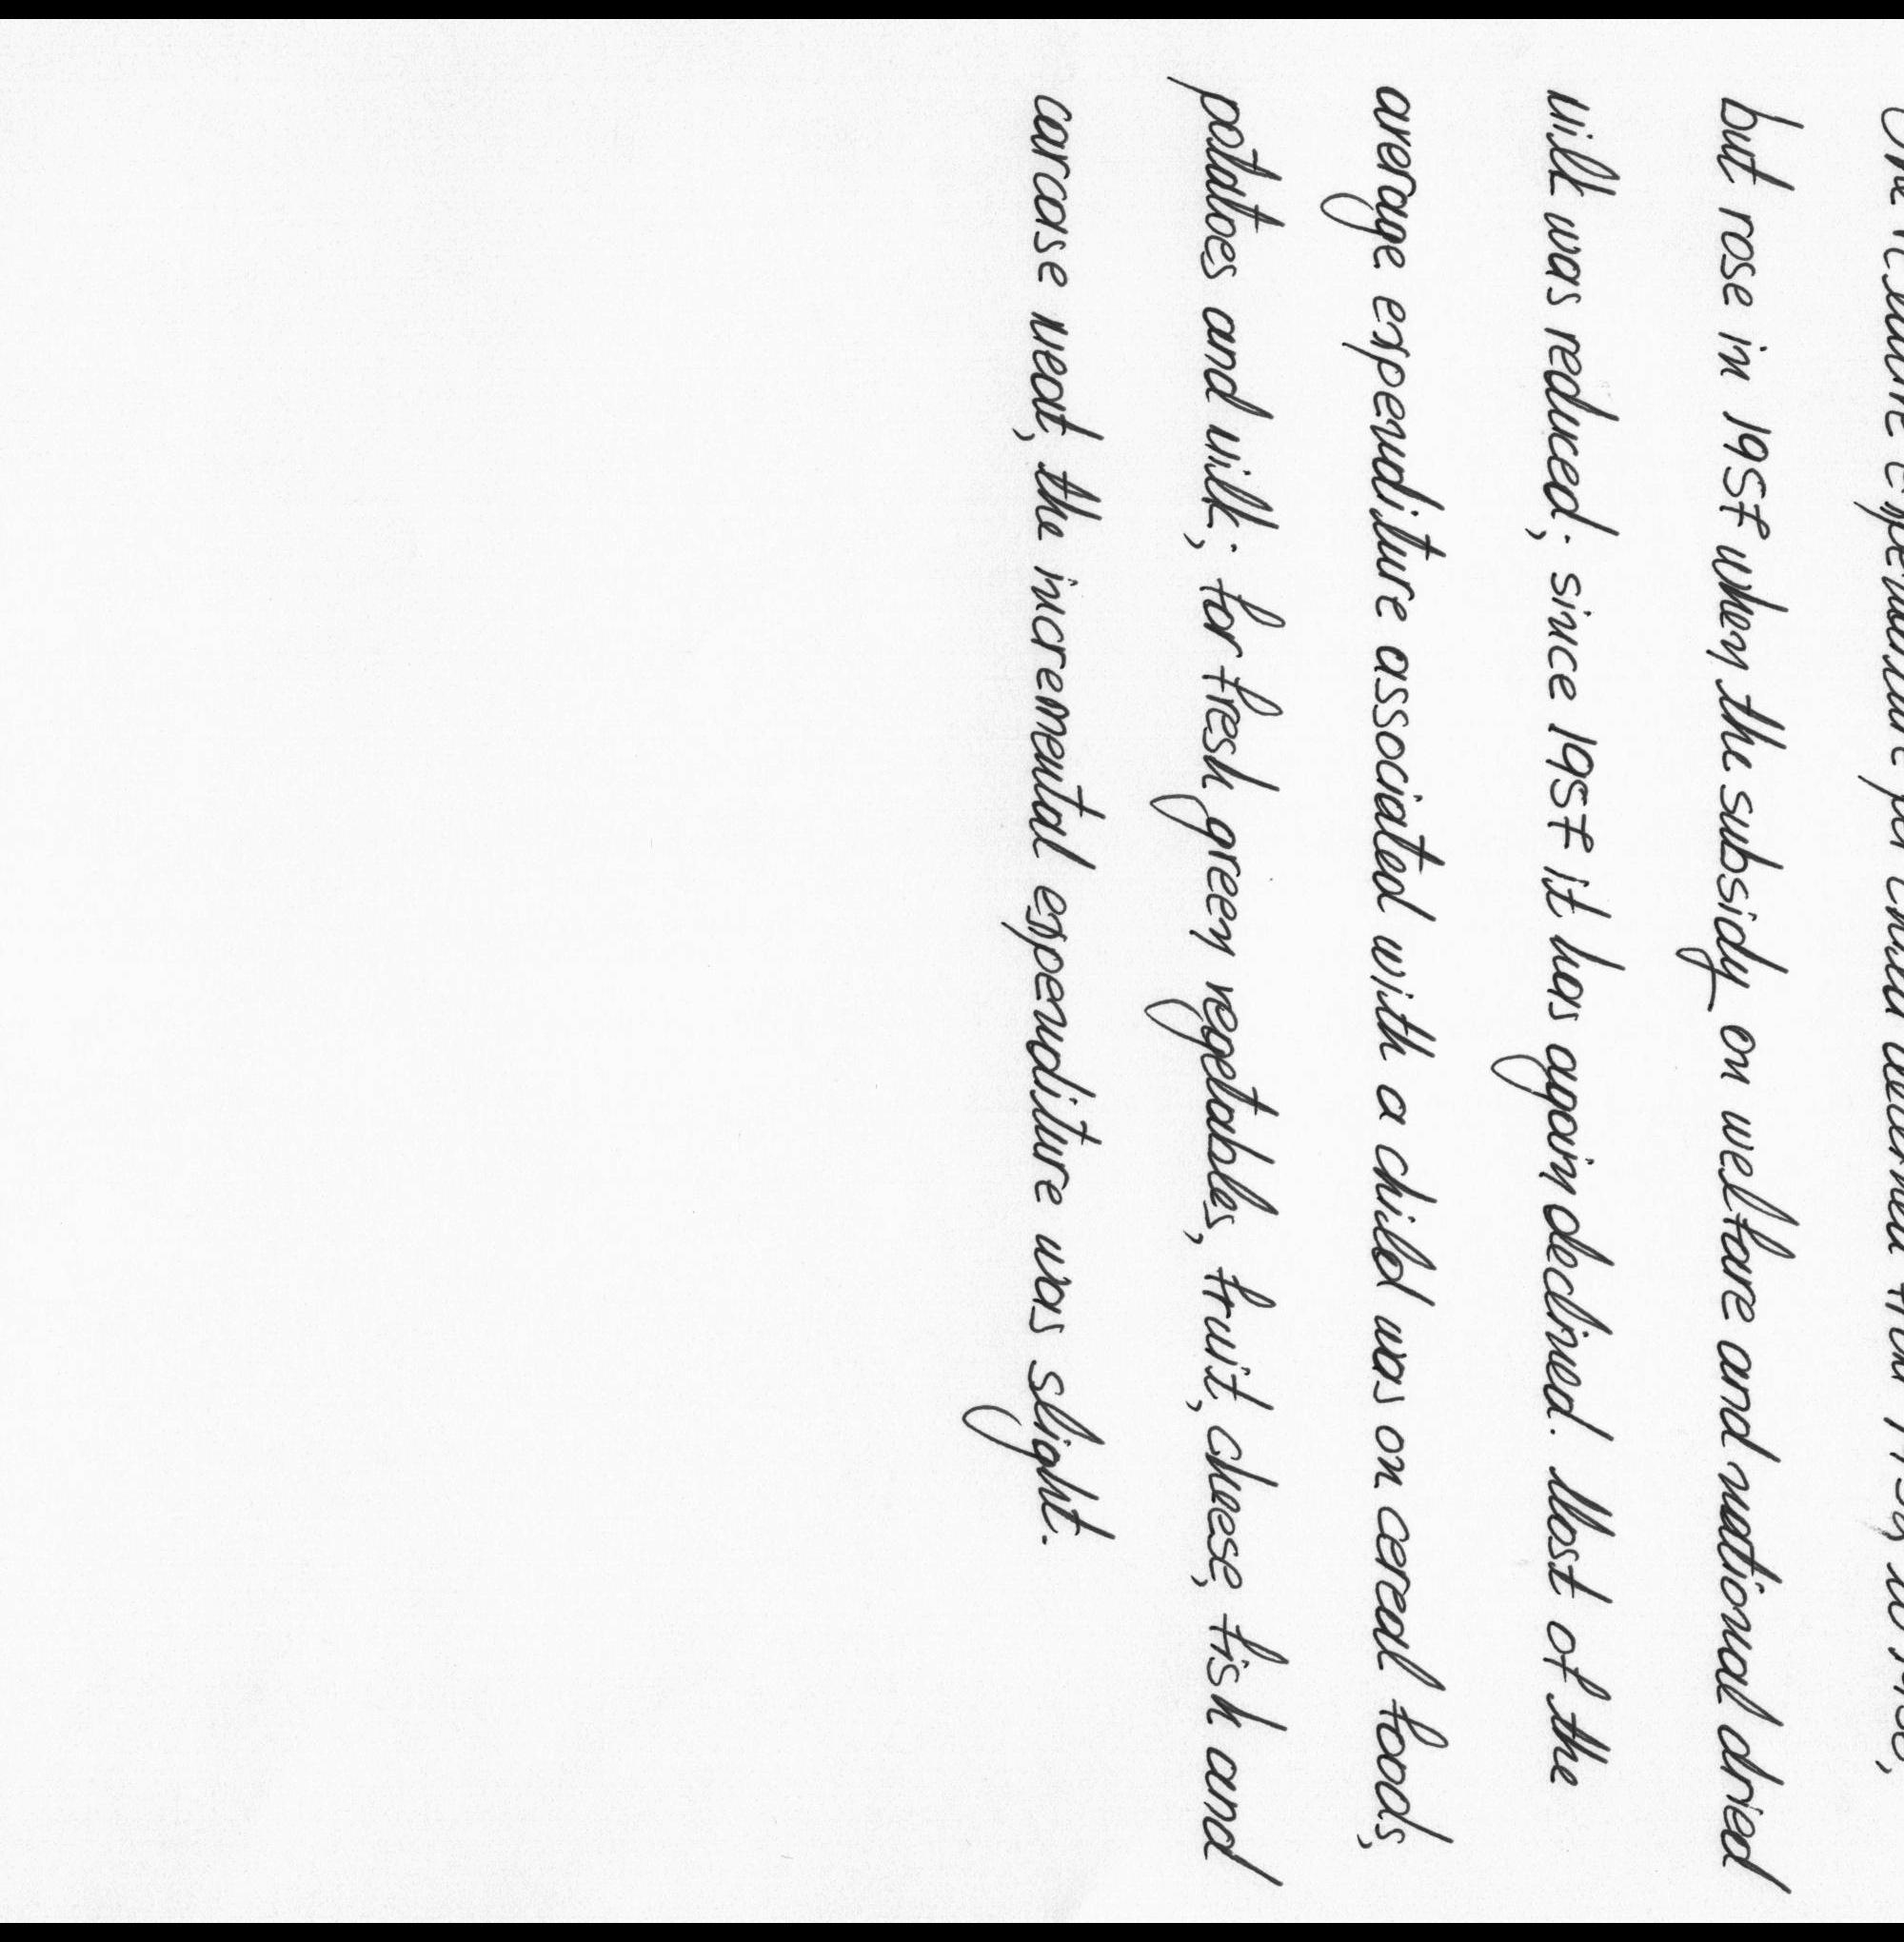 expenditure per child
but rose in 1957 when the subsidy on welfare and national dried
milk was reduced; since 1957 it has again declined. Most of the
average expenditure associated with a child was on cereal foods,
potatoes and milk; for fresh green vegetables, fruit, cheese, fish and
carcase meat, the incremental expenditure was slight.